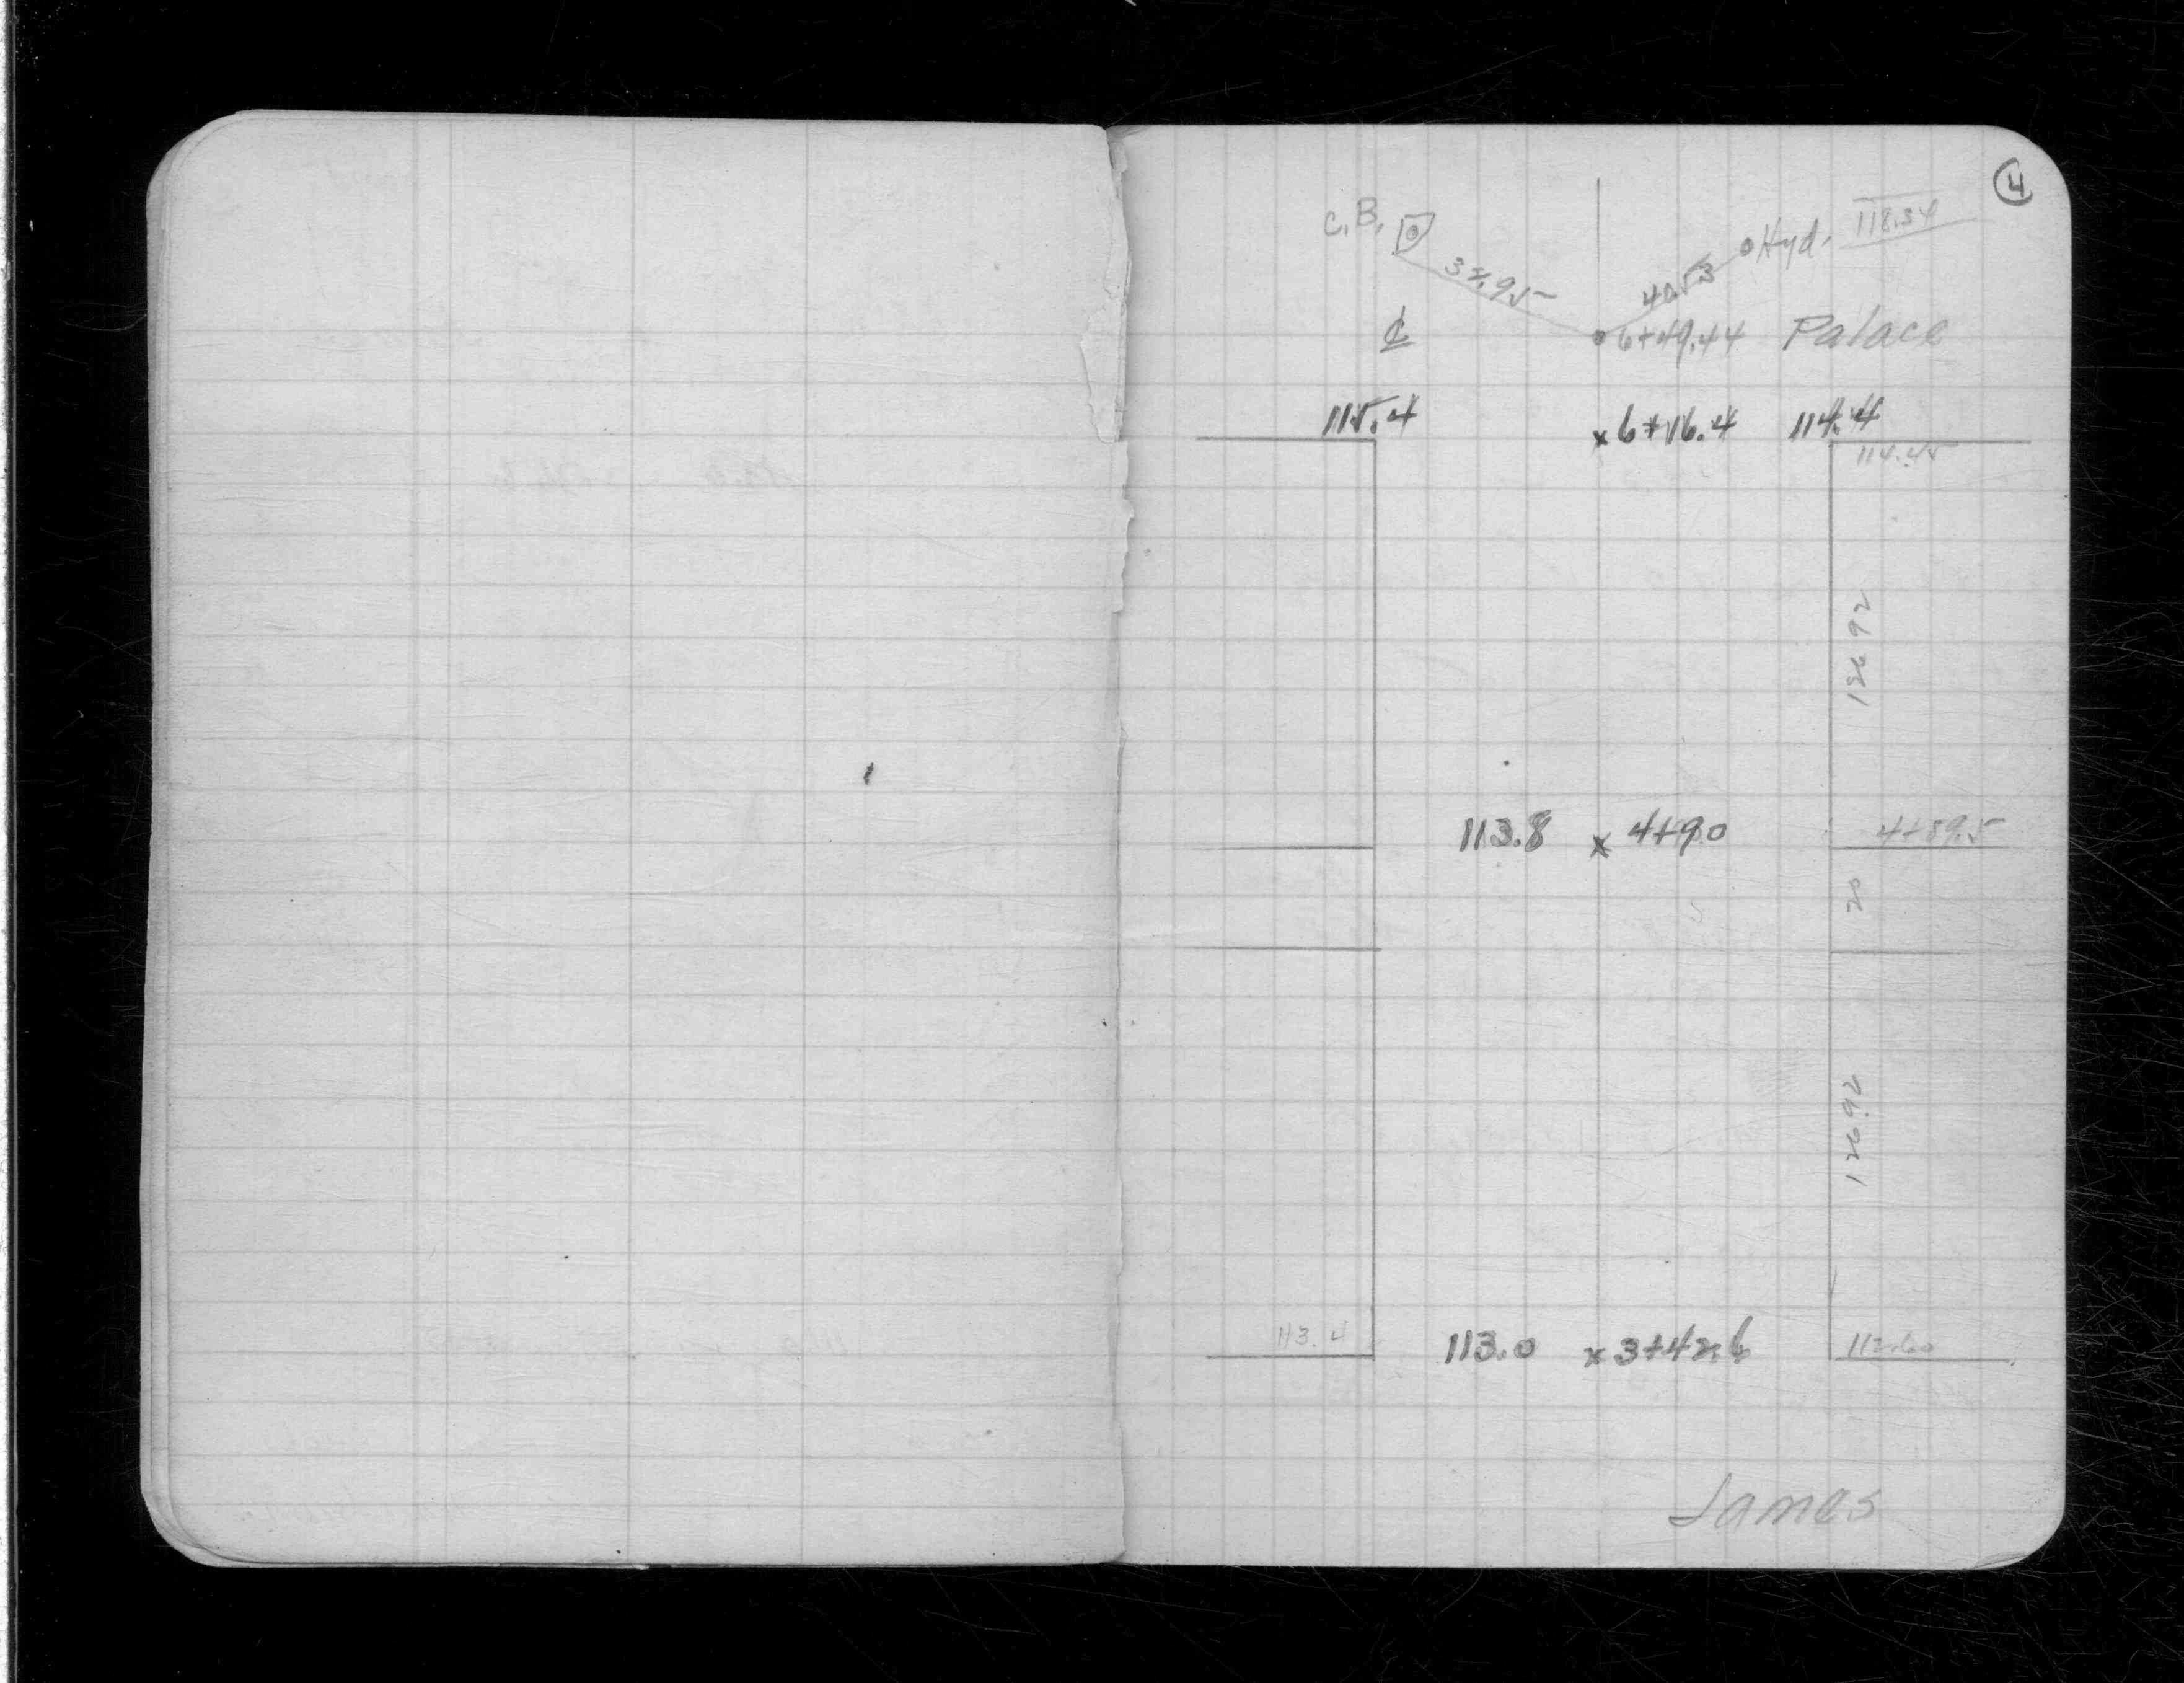 4
C.B. Hyd. 118.34
40.53
℄ 6+49.44 Palace
115.4 6+16.4 114.4
114.45
126.92
113.8 x 4+90 4+89.5
20
126.92
113.4 113.0 x 3+42.6 112.60
James